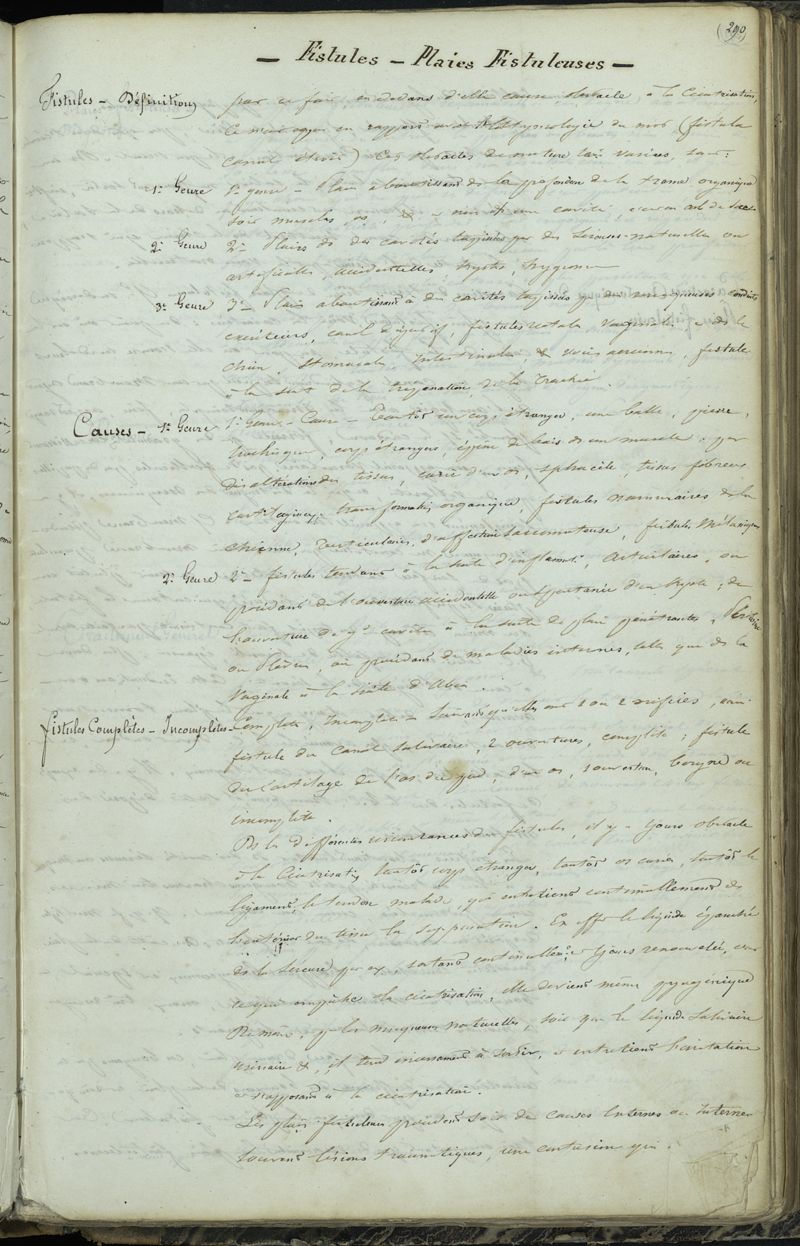 (290)
— Fistules — Plaies Fistuleuses —
Fistules — Définition par ce fait, en dedans d'elle cause, obstacle à la Cicatrisation,
en rapport avec l'Etymologie du mot (fistula
canal étroit) Ces obstacles de nature très variées, sont:
1er Genre 1er genre — Plaie aboutissant ds la profondeur de la trame organique
soit muscles, os, &
2e Genre 2e — Plaies ds des cavités tapissées par des Séreuses naturelles ou
artificielles, accidentelles, Kystes, hygroma
3e Genre 3e — Plaies aboutissant à des cavités tapissées par des muqueuses conduits
excréteurs, canal digestif, fistules vaginale ds la
chienne, Stomacale, Intestinale, & voies aériennes, fistule
à la suite de la trépanation, de la Trachée.
Causes — 1er Genre 1er Genre — Cause — Tantôt un corps étranger, une balle, pierre,
corps étrangers, épine de bois ds un muscle, par
des altérations des tissus, carie d'un os, sphacèle, tissus fibreux
cartilagineux, transformation organique, fistules mammaires de la
chienne, d'affection sarcomateuse, fistules
2e Genre 2e — fistules à la suite d'inflammat. Articulaires, ou
procédant de l'ouverture accidentelle ou spontanée d'un Kyste, de
l'ouverture de gdes cavités à la suite de plaies pénétrantes, Péritoine
ou Plèvre, ou procédant de maladies internes, telles que de la
Vaginale à la suite d'Abcès.
Fistules Complètes — Incomplètes Complète, Incomplète Suivant qu'elles ont 1 ou 2 orifices, ainsi
fistule du Canal Salivaire, 2 ouvertures, complète; fistule
du Cartilage de l'os du pied, d'un os, 1 ouverture, borgne ou
incomplète.
Ds les différentes circonstances des fistules, il y a tjours obstacle
à la Cicatrisation, tantôt corps étranger, tantôt os carié, tantôt le
ligament, le tendon malade, qui entretient continuellement ds
l'intérieur du tissu la suppuration. En effet le liquide épanché
ds la Séreuse par ex, sortant continuellement & tjours renouvelé,
ce qui empêche la cicatrisation, elle devient même pyogénique
De même, pr les muqueuses naturelles, soit que le liquide Salivaire
urinaire &, il tend incessamment à sortir, & entretient l'irritation
& s'opposant à la cicatrisation.
Les plaies fistuleuses procèdent soit de causes Internes ou Externes
souvent lésions traumatiques, une contusion qui